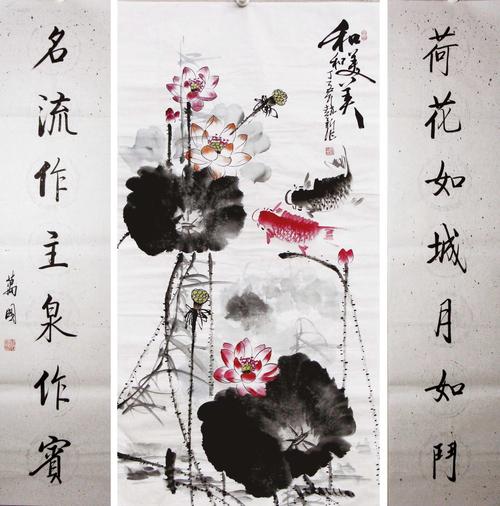 荷花如城月如鬥
和和美美
名流作主泉作賓
萬國